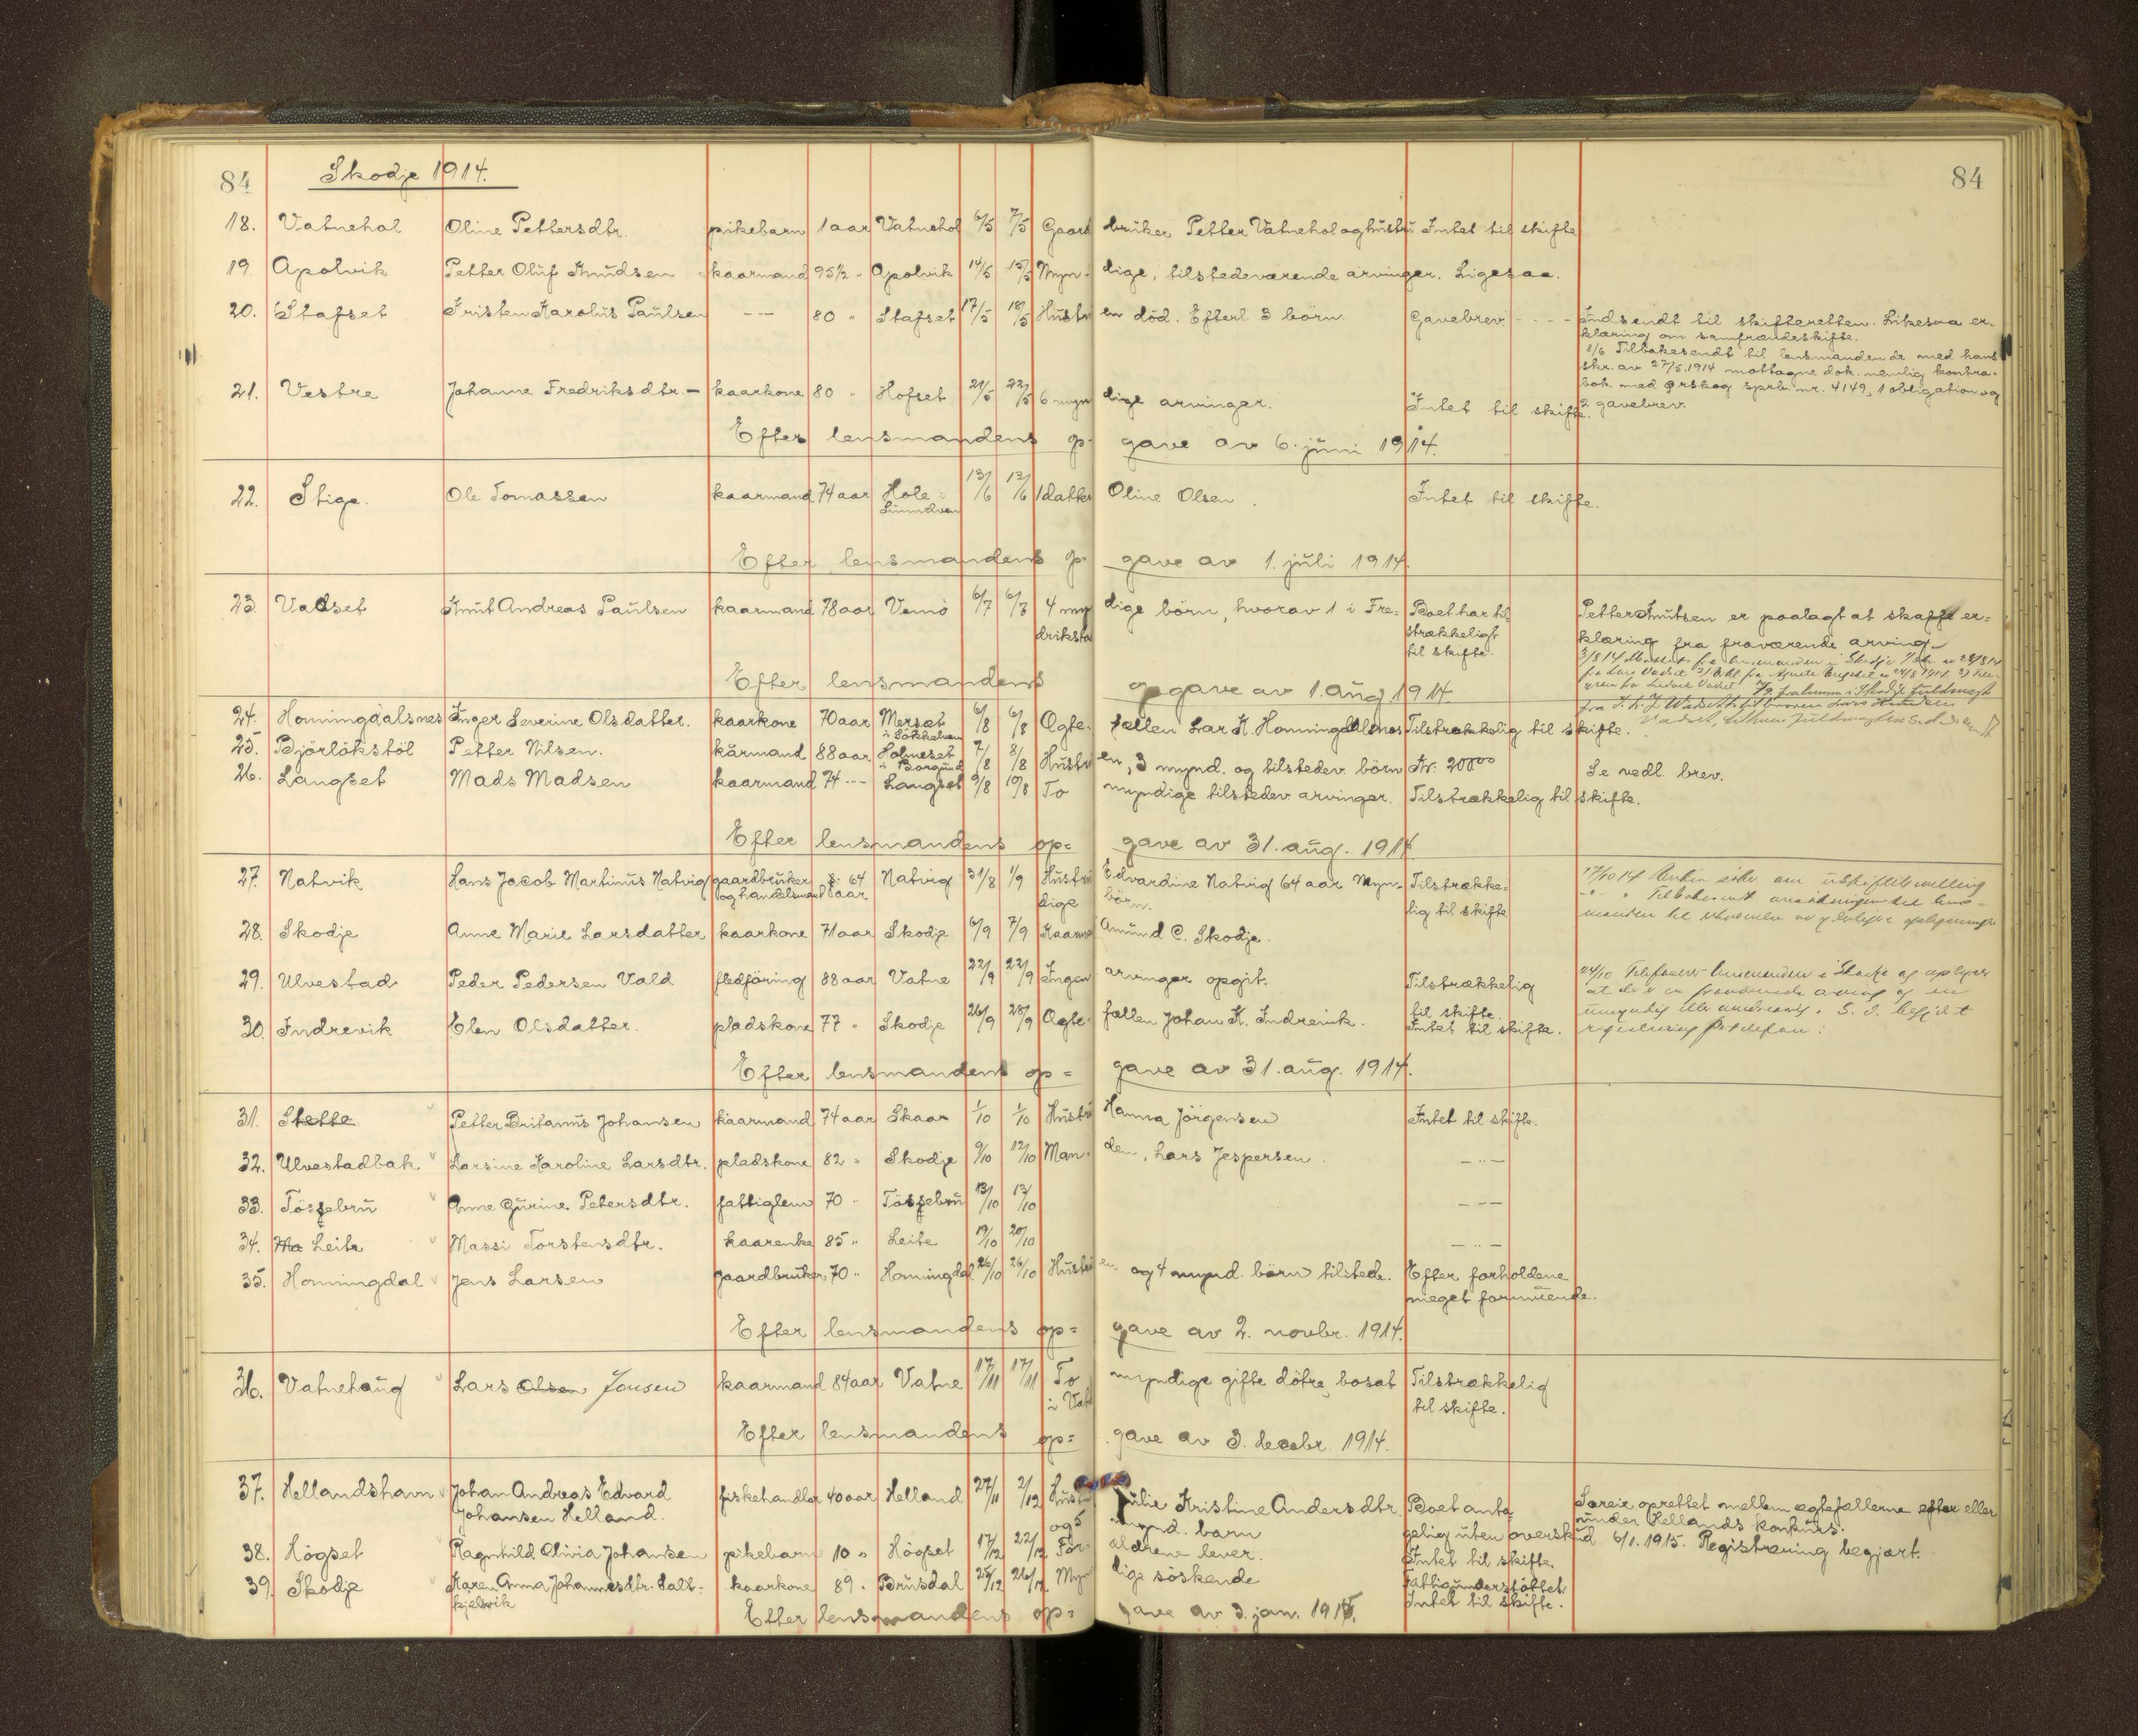 84 Skodje 1914. 84
18. Vatnehol Oline Pettersdtr. pikebarn 1 aar Vatnehol 6/5 7/5 Gaard bruker Petter Vatnehol og hustru Intet til skifte
19. Apolvik Petter Oluf Knudsen kaarmand 95 1/2 " Apolvik 14/5 15/5 Myn- dige, tilstedeværende arvinger. Ligesaa.
20. Stafset Kristen Karolus Paulsen -"- 80 " Stafset 17/5 18/5 Hustru en död. Efterl 3 börn. Gavebrev. - - - - Indsendt til skifteretten. Likesaa er-
klæring om samfrændeskifte.
8/6 Tilbakesendt til lensmanden de med hans
skr. av 27/5.1914 mottagne dok. nemlig kontra-
bok med Ørskog sprb. nr. 4149, 1 obligation og
21. Vestre Johanne Fredriksdtr. - kaarkone 80 " Hofset 21/5 22/5 6 myn dige arvinger. Intet til skifte. 2 gavebrev.
Efter lensmandens op- gave av 6. juni 1914.
22. Stige. Ole Tomassen kaarmand 74 aar Hole i 13/6 13/6 1 datter Oline Olsen. Intet til skifte.
Sunnelven
Efter lensmandens op- gave av 1. juli 1914.
23. Vadset Knut Andreas Paulsen kaarmand 78 aar Vemö 6/7 6/7 4 myn dige börn, hvorav 1 i Fre- Boet har til- Petter Knutsen er paalagt at skaffe er-
drikstad strækkeligt klæring fra fraværende arving.
til skifte.
Efter lensmandens opgave av 1. aug 1914.
24. Honningdalsnes Inger Severine Olsdatter. kaarkone 70 aar Mersæt 6/8 6/8 Ægte- fællen Lar K. Honningdalsnes Tilstrækkelig til skifte.
i Sökkelven
25. Björlökstöl Petter Nilsen. kårmand 88 aar Holmeset 7/8 8/8 Hustru en, 3 mynd. og tilstedev. börn Kr. 20000 Se vedl. brev.
i Borgund
26. Langset Mads Madsen kaarmand 74 -"- Langset 9/8 10/8 To myndige tilstedev arvinger. Tilstrækkelig til skifte.
Efter lensmandens op= gave av 31. aug. 1914.
27. Natvik Hans Jacob Martinus Natvig gaardbruker 64 Natvig 31/8 1/9 Hustru Edvardine Natvig 64 aar Myn- Tilstrække=
og handelsmand aar dige börn. lig til skifte
28. Skodje Anne Marie Larsdatter kaarkone 71 aar Skodje 6/9 7/9 Kaarm Amund C. Skodje.
29. Ulvestad Peder Pedersen Vald flodföring 88 aar Vatne 22/9 22/9 Ingen arvinger opgit. Tilstrækkelig
til skifte.
30. Indrevik Elen Olsdatter. pladskone 77 " Skodje 26/9 28/9 Ægte- fællen Johan K. Indrevik. Intet til skifte.
Efter lensmandens op= gave av 31. aug. 1914.
31. Stette Petter Britanus Johansen kaarmand 74 aar Skaar 1/10 1/10 Hustru Hanna Jörgensen Intet til skifte.
32. Ulvestadbak. Larsine Karoline Larsdtr. pladskone 82 " Skodje 9/10 12/10 Man- den, Lars Jespersen. -"-
33. Tössebru Anne Gurine Petersdtr. fattiglem 70 " Tössebru 13/10 13/10 -"-
34. Leite Massi Torstensdtr. kaarenke 85 " Leite 19/10 20/10 -"-
35. Honningdal Jens Larsen gaardbruker 70 " Honningdal 26/10 26/10 Hustru en og 4 mynd. börn tilstede. Efter forholdene
meget formuende.
Efter lensmandens op= gave av 2. novbr. 1914.
36. Vatnehaug Lars Olsen Jonsen kaarmand 84 aar Vatne 17/11 17/11 To myndige gifte dötre, bosat Tilstrækkelig
i Vat til skifte.
Efter lensmandens op= gave av 3. decbr. 1914.
37. Hellandshavn Johan Andreas Edvard fiskehandler 40 aar Helland 27/11 2/12 Hustru Julie Kristine Andersdtr. Boet anta- Særeie oprettet mellem ægtefællerne efter eller
Johansen Helland. og 5 mynd. barn gelig uten overskud under Hellands konkurs.
6/1. 1915. Registrering begjært.
38. Högset Ragnhild Olivia Johansen pikebarn 10 " Högset 17/12 22/12 For- ældrene lever. Intet til skifte
39. Skodje Karen Anna Johannesdtr. Dalt- kaarkone 89 " Brusdal 25/12 26/12 Myn dige söskende Fattigunderstöttet.
kjelsvik Intet til skifte.
Efter lensmandens op= gave av 3. jan. 1915.